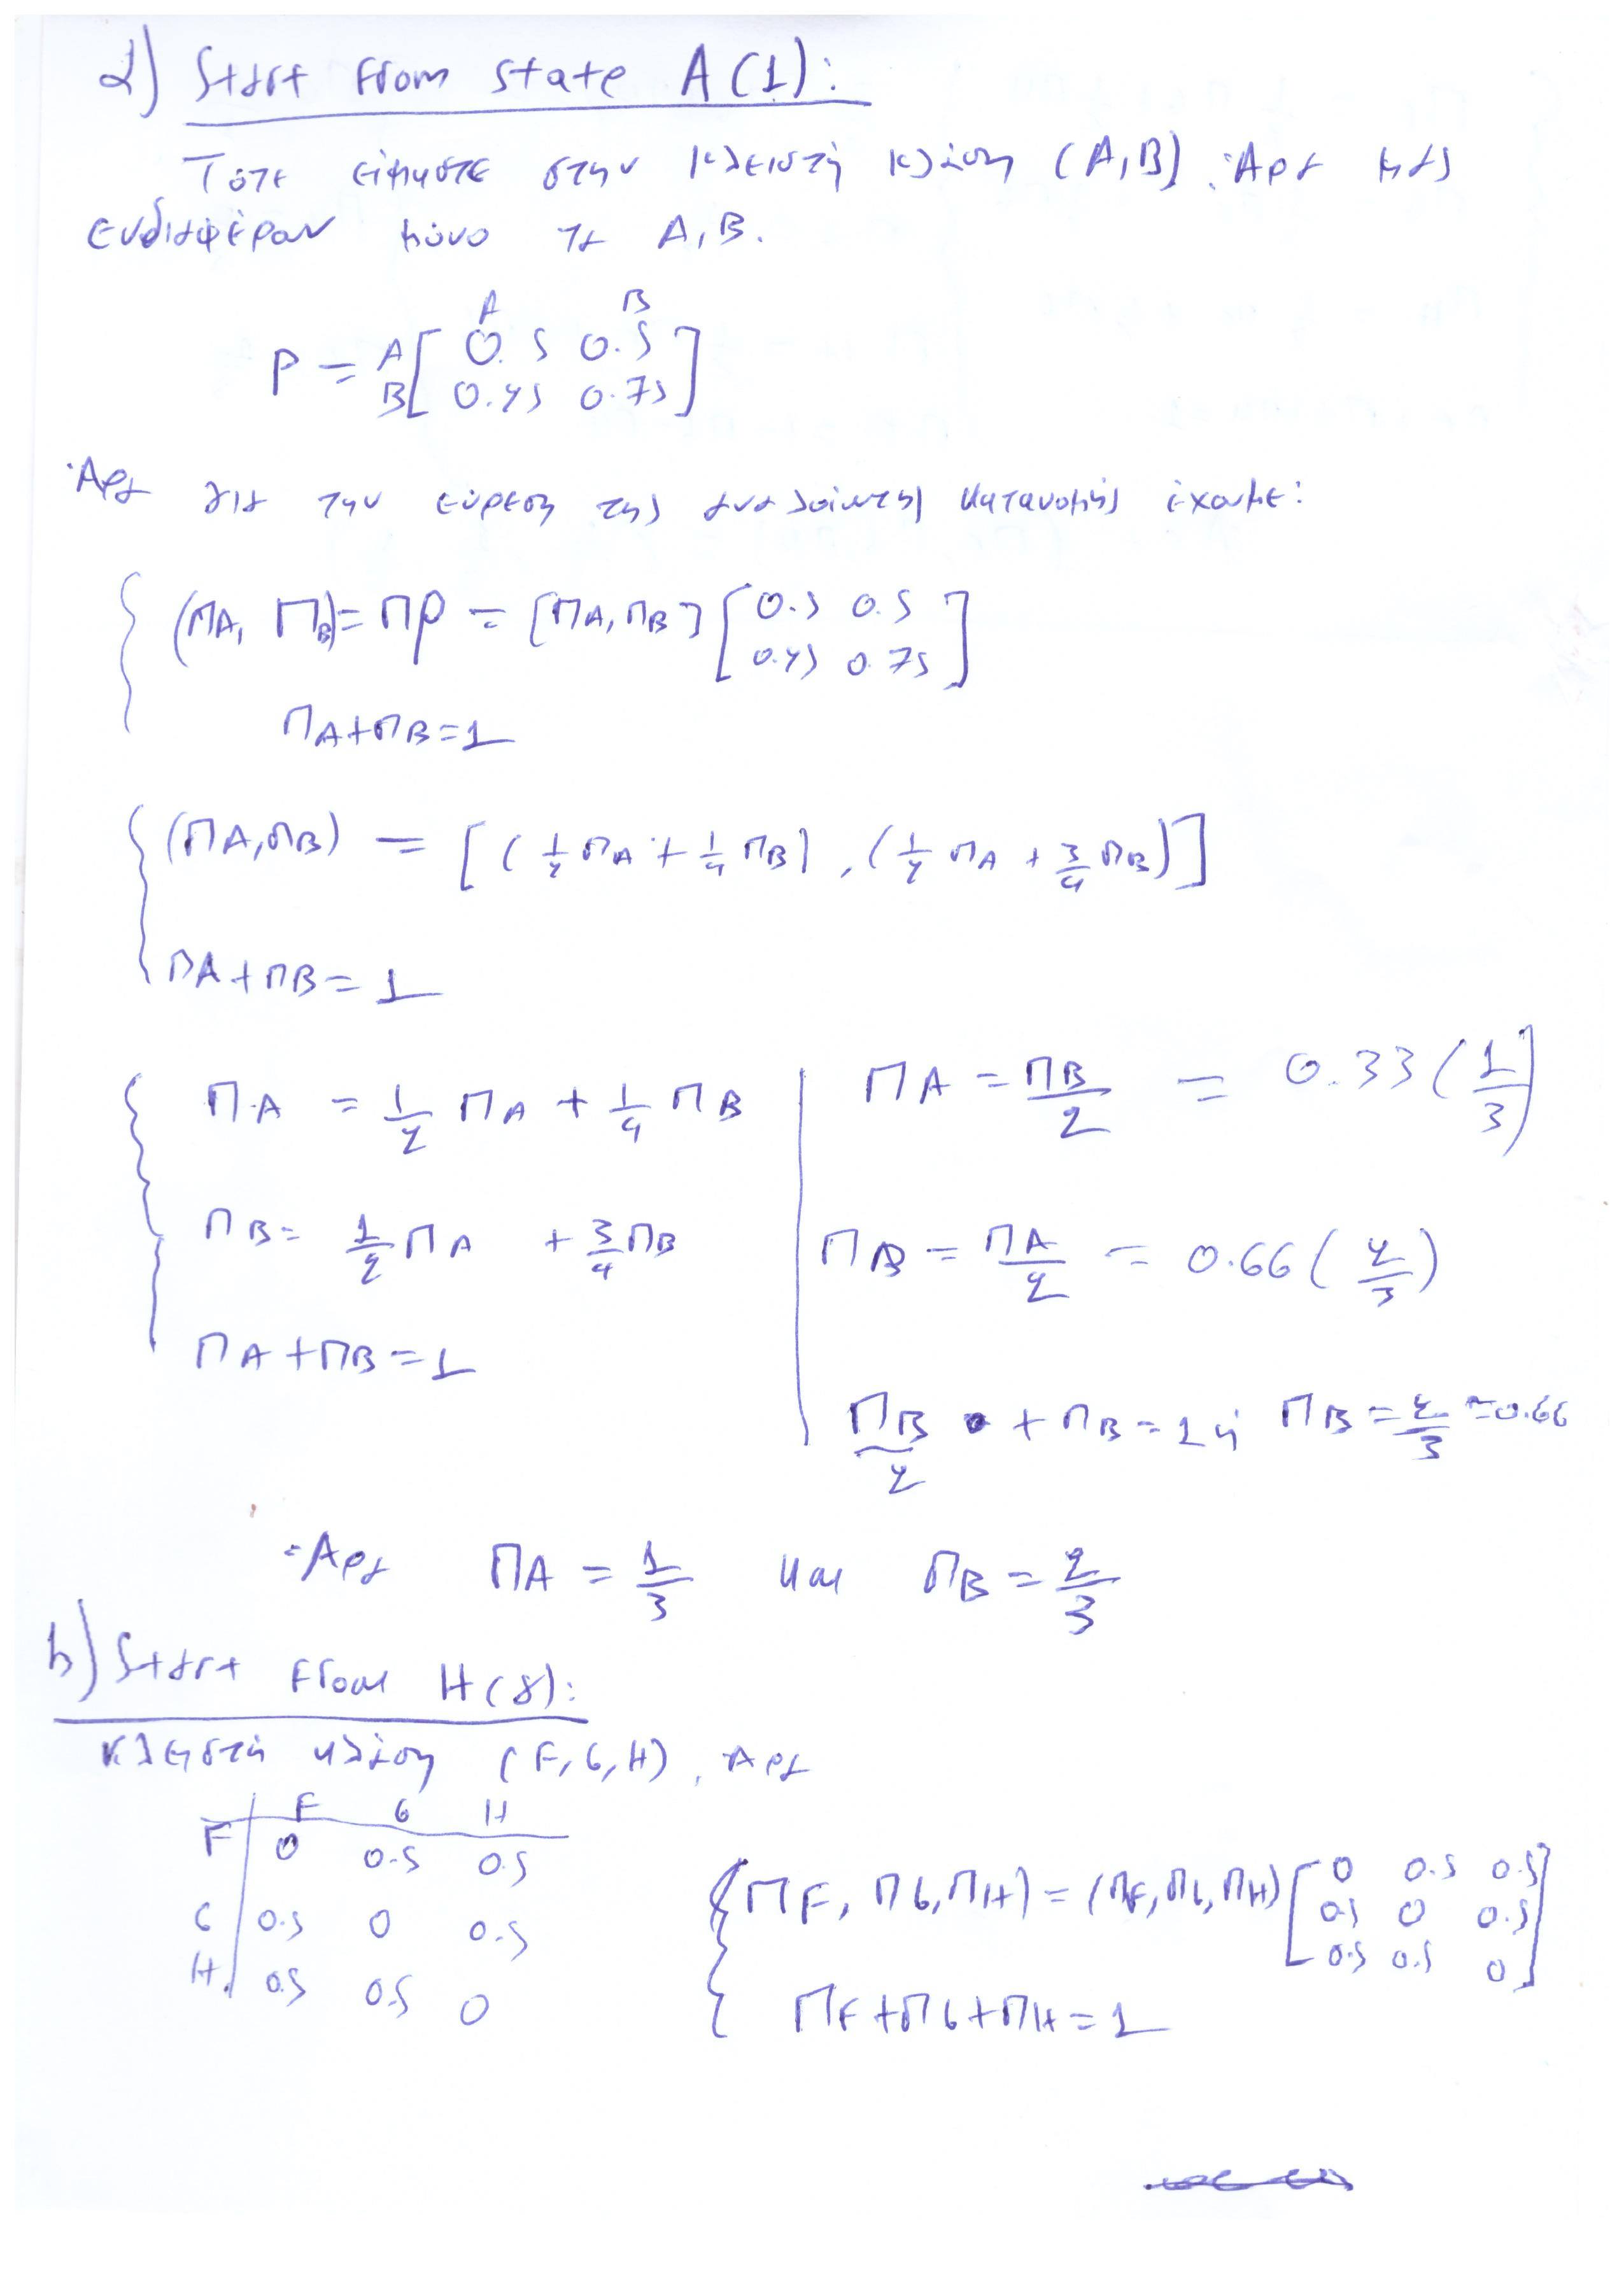 a) Start from state A(1):
Τότε είμαστε στην κλειστή κλάση (A,B). Άρα μας
ενδιαφέρουν μόνο τα A,B.
A B
P = A[ 0.5 0.5 ]
B[ 0.25 0.75 ]
Άρα για την εύρεση της αναλοίωτης κατανομής έχουμε:
(ΠA, ΠB) = ΠP = [ΠA, ΠB] [0.5 0.5
0.25 0.75]
ΠA+ΠB=1
(ΠA,ΠB) = [(1/2 ΠA + 1/4 ΠB), (1/2 ΠA + 3/4 ΠB)]
ΠA+ΠB=1
ΠA = 1/2 ΠA + 1/4 ΠB
ΠB = 1/2 ΠA + 3/4 ΠB
ΠA+ΠB=1
ΠA = ΠB/2 = 0.33 (1/3)
ΠB = ΠA/2 = 0.66 (2/3)
ΠB/2 + ΠB = 1 ή ΠB = 2/3 = 0.66
Άρα ΠA = 1/3 και ΠB = 2/3
b) Start from H(8):
κλειστή κλάση (F,G,H), Άρα
F G H
F 0 0.5 0.5
G 0.5 0 0.5
H 0.5 0.5 0
(ΠF, ΠG, ΠH) = (ΠF, ΠG, ΠH) [0 0.5 0.5
0.5 0 0.5
0.5 0.5 0]
ΠF+ΠG+ΠH=1